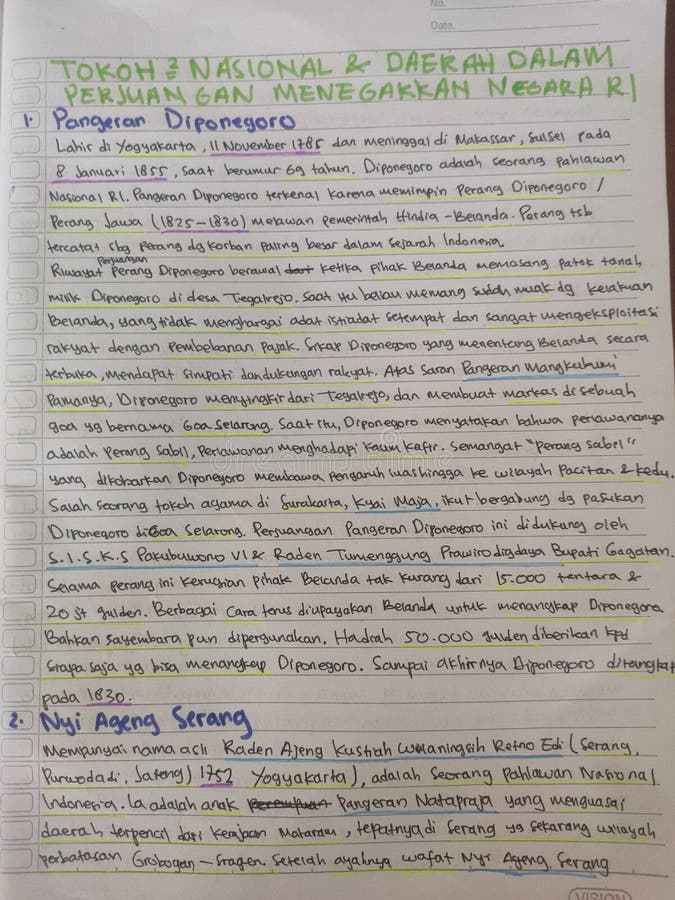 No.
Date.
TOKOH² NASIONAL & DAERAH DALAM
PERJUANGAN MENEGAKKAN NEGARA RI
1. Pangeran Diponegoro
Lahir di Yogyakarta, 11 November 1785 dan meninggal di Makassar, Sulsel pada
8 Januari 1855, saat berumur 69 tahun. Diponegoro adalah seorang pahlawan
Nasional RI. Pangeran Diponegoro terkenal karena memimpin Perang Diponegoro /
Perang Jawa (1825-1830) melawan pemerintah Hindia-Belanda. Perang tsb
tercatat sbg perang dg korban paling besar dalam sejarah Indonesia.
Riwayat perjuangan Perang Diponegoro berawal dari ketika pihak Belanda memasang patok tanah
milik Diponegoro di desa Tegalrejo. Saat itu beliau memang sudah muak dg kelakuan
Belanda, yang tidak menghargai adat istiadat setempat dan sangat mengeksploitasi
rakyat dengan Pembebanan Pajak. Sikap Diponegoro yang menentang Belanda secara
terbuka, mendapat simpati dan dukungan rakyat. Atas Saran Pangeran Mangkubumi
Pamanya, Diponegoro menyingkir dari Tegalrejo, dan membuat markas di sebuah
goa yg bernama Goa Selarong. Saat itu, Diponegoro menyatakan bahwa perlawananya
adalah Perang Sabil, Perlawanan menghadapi kaum kafir. Semangat "perang sabil"
yang dikobarkan Diponegoro membawa pengaruh luas hingga ke wilayah Pacitan & Kedu.
Salah seorang tokoh agama di Surakarta, Kyai Maja, ikut bergabung dg pasukan
Diponegoro di Goa Selarong. Perjuangan Pangeran Diponegoro ini didukung oleh
S.I.S.K.S Pakubuwono VI & Raden Tumenggung Prawirodigdaya Bupati Gagatan.
Selama perang ini kerugian pihak Belanda tak kurang dari 15.000 tentara &
20 jt gulden. Berbagai cara terus diupayakan Belanda untuk menangkap Diponegoro.
Bahkan sayembara pun dipergunakan. Hadiah 50.000 gulden diberikan kpd
siapa saja yg bisa menangkap Diponegoro. Sampai akhirnya Diponegoro ditangkap
pada 1830.
2. Nyi Ageng Serang
Mempunyai nama asli Raden Ajeng Kustiah Wulaningsih Retno Edi (Serang,
Purwodadi, Jateng) 1752 Yogyakarta), adalah seorang Pahlawan Nasional
Indonesia. Ia adalah anak perempuan Pangeran Natapraja yang menguasai
daerah terpencil dari kerajaan Mataram, tepatnya di Serang yg sekarang wilayah
perbatasan Grobogan-Sragen. Setelah ayahnya wafat Nyi Ageng Serang
VISION
dreamstime